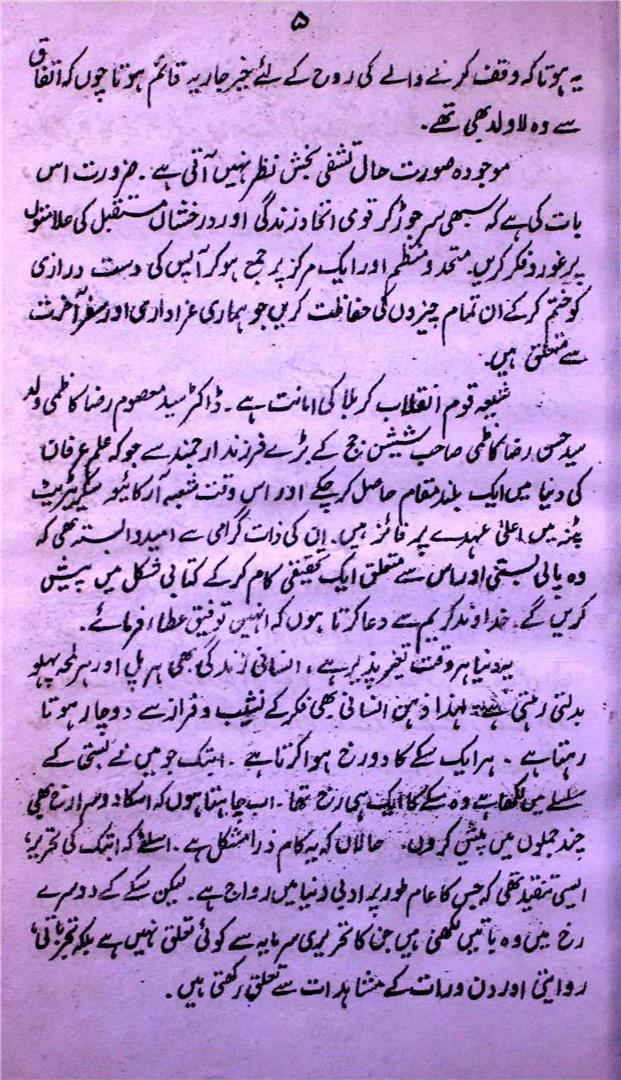 ۵
یہ ہوتا کہ وقف کرنے والے کی روح کے لئے خیر جاریہ قائم ہوتا چوں کہ اتفاق
سے وہ لاولد بھی تھے۔
موجودہ صورت حال تشفی بخش نظر نہیں آتی ہے۔ ضرورت اس
بات کی ہے کہ سبھی سر جوڑ کر قومی اتحاد زندگی اور درخشاں مستقبل کی علامتوں
پر غور و فکر کریں۔ متحد و منظم اور ایک مرکز پر جمع ہو کر آپس کی دست درازی
کو ختم کر کے ان تمام چیزوں کی حفاظت کریں جو ہماری عزاداری اور سفر آخرت
سے متعلق ہیں۔
شیعہ قوم انقلاب کربلا کی امانت ہے۔ ڈاکٹر سید معصوم رضا کاظمی ولد
سید حسن رضا کاظمی صاحب سیشن جج کے بڑے فرزند ارجمند سے جو کہ علم عرفان
کی دنیا میں ایک بلند مقام حاصل کر چکے اور اس وقت شعبہ آرکائیو سکریٹریٹ
پٹنہ میں اعلیٰ عہدے پر فائز ہیں۔ ان کی ذات گرامی سے امید وابستہ تھی کہ
وہ پالی بستی اور اس سے متعلق ایک تحقیقی کام کر کے کتابی شکل میں پیش
کریں گے۔ خداوند کریم سے دعا کرتا ہوں کہ انہیں توفیق عطاء فرمائے۔
یہ دنیا ہر وقت تغیر پذیر ہے، انسانی زندگی بھی ہر پل اور ہر لمحہ پہلو
بدلتی رہتی ہے۔ لہذا ذہن انسانی بھی فکر کے نشیب و فراز سے دوچار ہوتا
رہتا ہے۔ ہر ایک سکے کا دو رخ ہوا کرتا ہے۔ ابتک جو میں نے بستی کے
سلسلے میں لکھا ہے وہ سکے کا ایک ہی رخ تھا۔ اب چاہتا ہوں کہ اسکا دوسرا رخ بھی
چند جملوں میں پیش کروں۔ حالاں کہ یہ کام ذرا مشکل ہے۔ اسلئے کہ ابتک کی تحریر
ایسی تنقید تھی کہ جس کا عام طور پر ادبی دنیا میں رواج ہے۔ لیکن سکے کے دوسرے
رخ میں وہ باتیں لکھنی ہیں جن کا تحریری سرمایہ سے کوئی تعلق نہیں ہے بلکہ تجرباتی،
روایتی اور دن و رات کے مشاہدات سے تعلق رکھتی ہیں۔